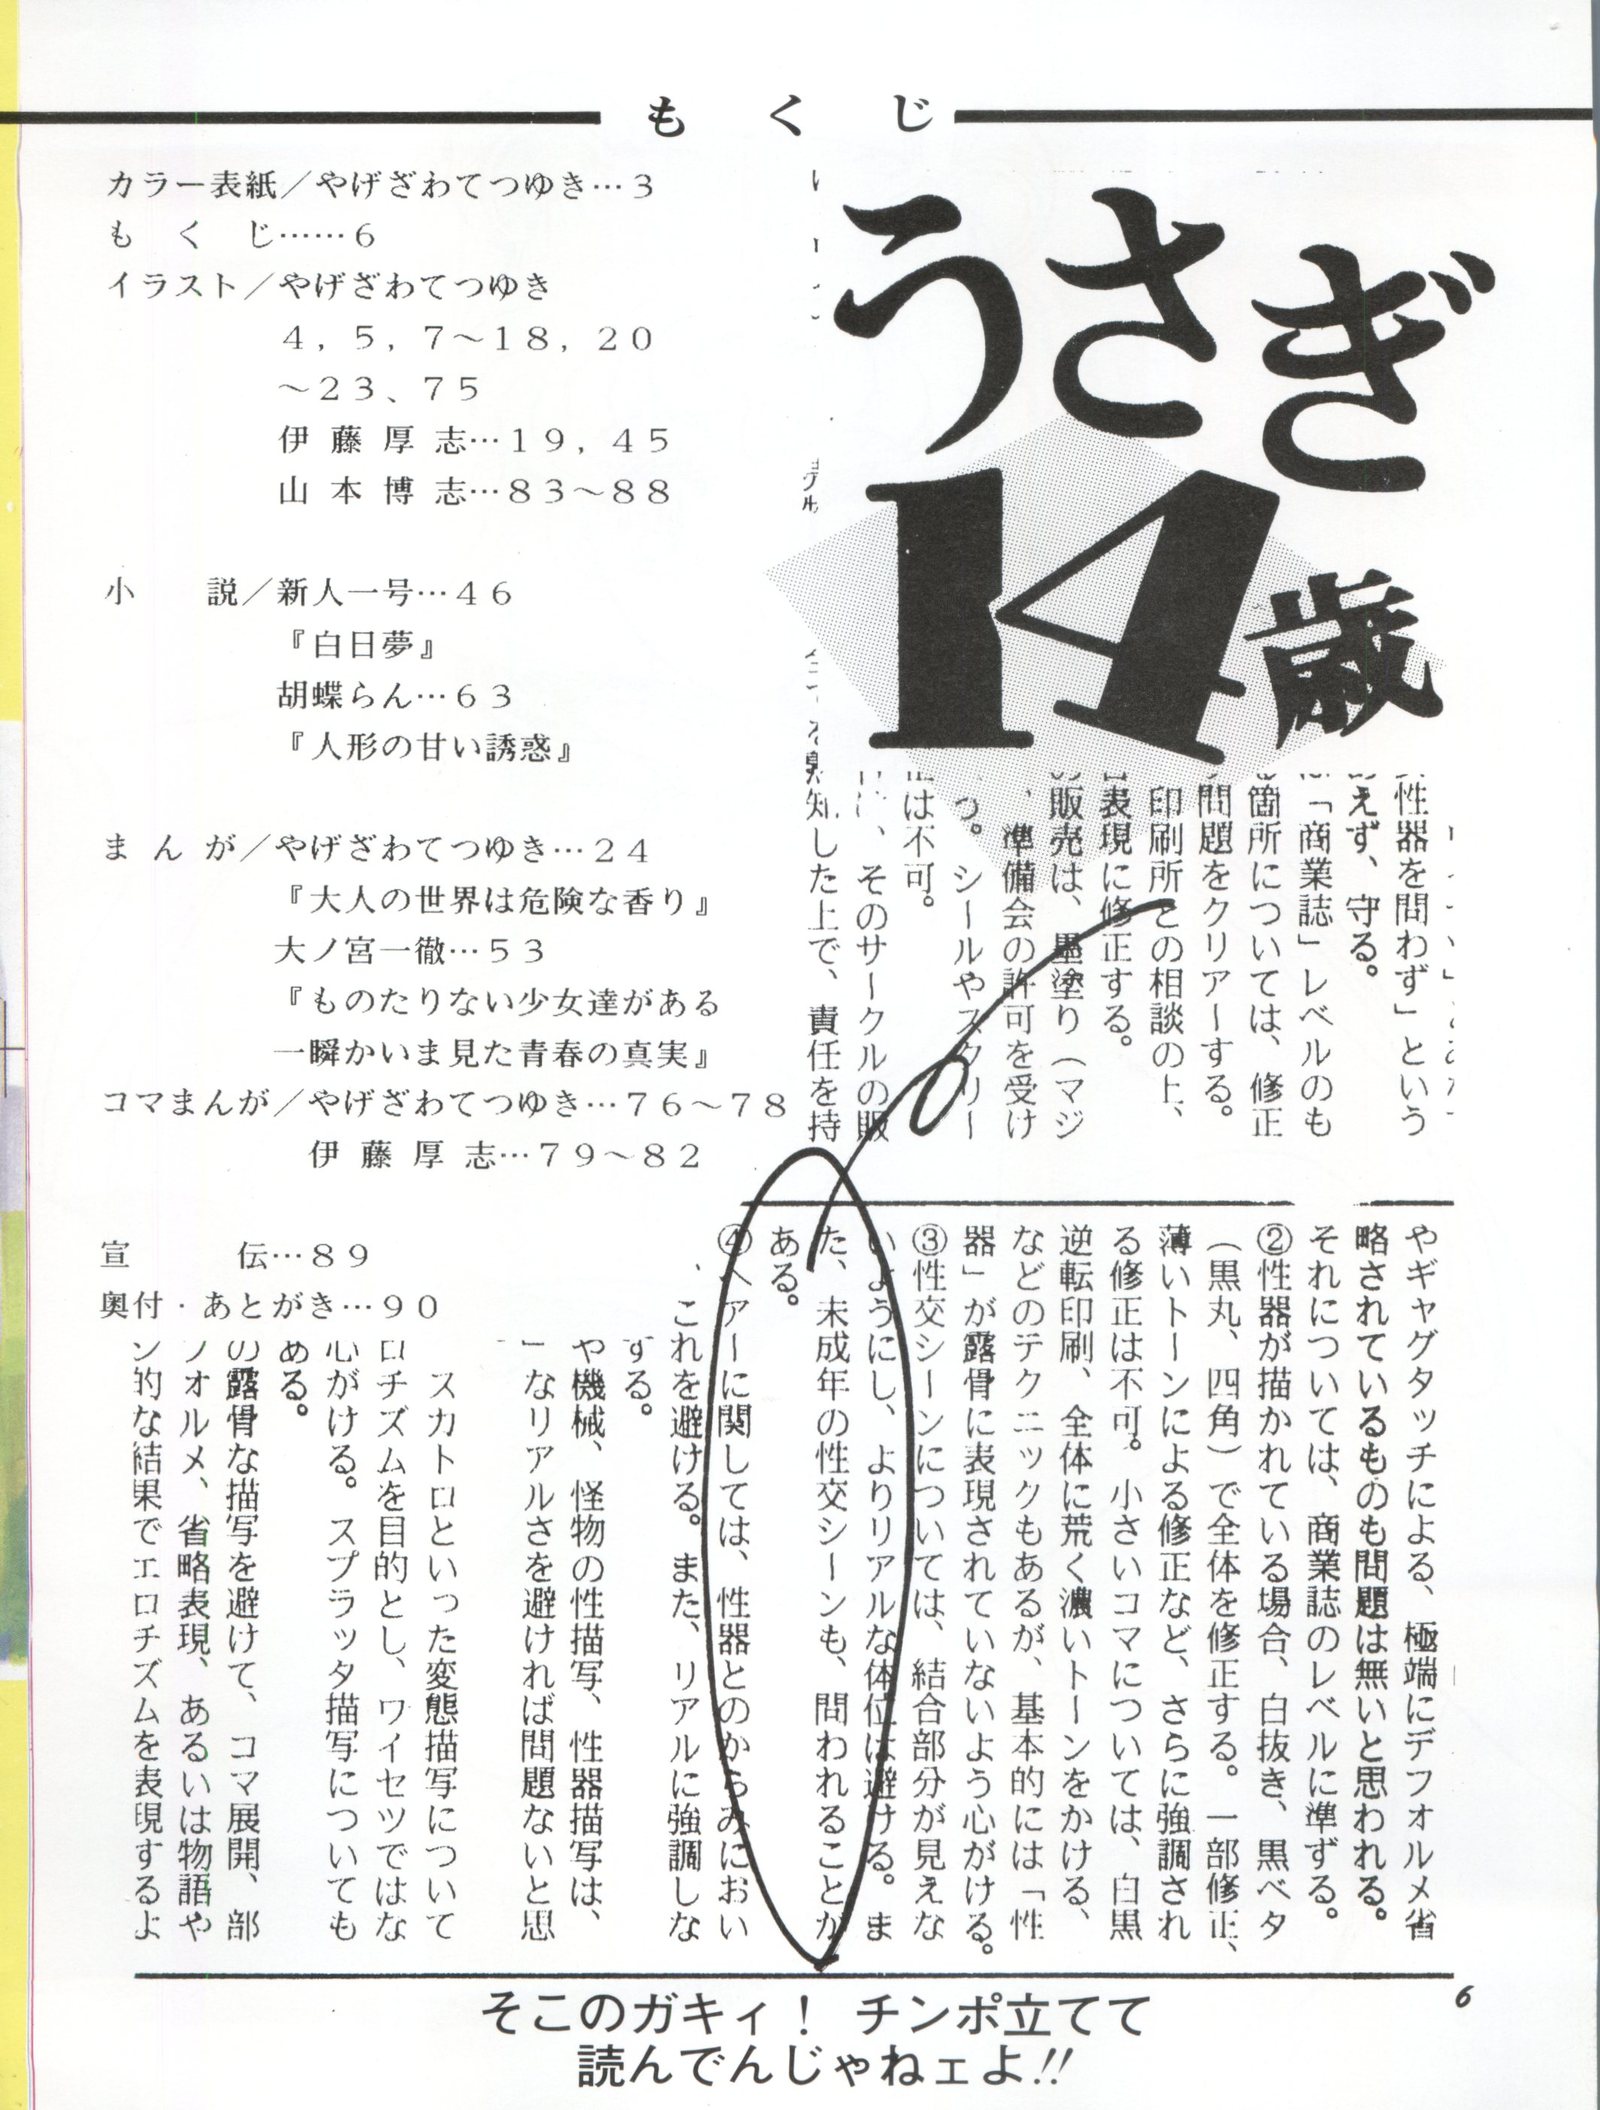 もくじ
カラー表紙／やげざわてつゆき…３
もくじ……６
イラスト／やげざわてつゆき
４，５，７～１８，２０
～２３、７５
伊藤厚志…１９，４５
山本博志…８３～８８
小説／新人一号…４６
『白日夢』
胡蝶らん…６３
『人形の甘い誘惑』
まんが／やげざわてつゆき…２４
『大人の世界は危険な香り』
大ノ宮一徹…５３
『ものたりない少女達がある
一瞬かいま見た青春の真実』
コマまんが／やげざわてつゆき…７６～７８
伊藤厚志…７９～８２
宣伝…８９
奥付・あとがき…９０
うさぎ
14歳
性器を問わず」という
えず、守る。
「商業誌」レベルのも
箇所については、修正
問題をクリアーする。
印刷所との相談の上、
表現に修正する。
の販売は、墨塗り（マジ
、準備会の許可を受け
つ。シールやスクリー
は不可。
、そのサークルの販
知した上で、責任を持
やギャグタッチによる、極端にデフォルメ省
略されているものも問題は無いと思われる。
それについては、商業誌のレベルに準ずる。
②性器が描かれている場合、白抜き、黒ベタ
（黒丸、四角）で全体を修正する。一部修正、
薄いトーンによる修正など、さらに強調され
る修正は不可。小さいコマについては、白黒
逆転印刷、全体に荒く濃いトーンをかける、
などのテクニックもあるが、基本的には「性
器」が露骨に表現されていないよう心がける。
③性交シーンについては、結合部分が見えな
いようにし、よりリアルな体位は避ける。ま
た、未成年の性交シーンも、問われることが
ある。
④ヘアーに関しては、性器とのからみにおい
、これを避ける。また、リアルに強調しな
する。
や機械、怪物の性描写、性器描写は、
なリアルさを避ければ問題ないと思
スカトロといった変態描写について
ロチズムを目的とし、ワイセツではな
心がける。スプラッタ描写についても
める。
の露骨な描写を避けて、コマ展開、部
フォルメ、省略表現、あるいは物語や
ン的な結果でエロチズムを表現するよ
6